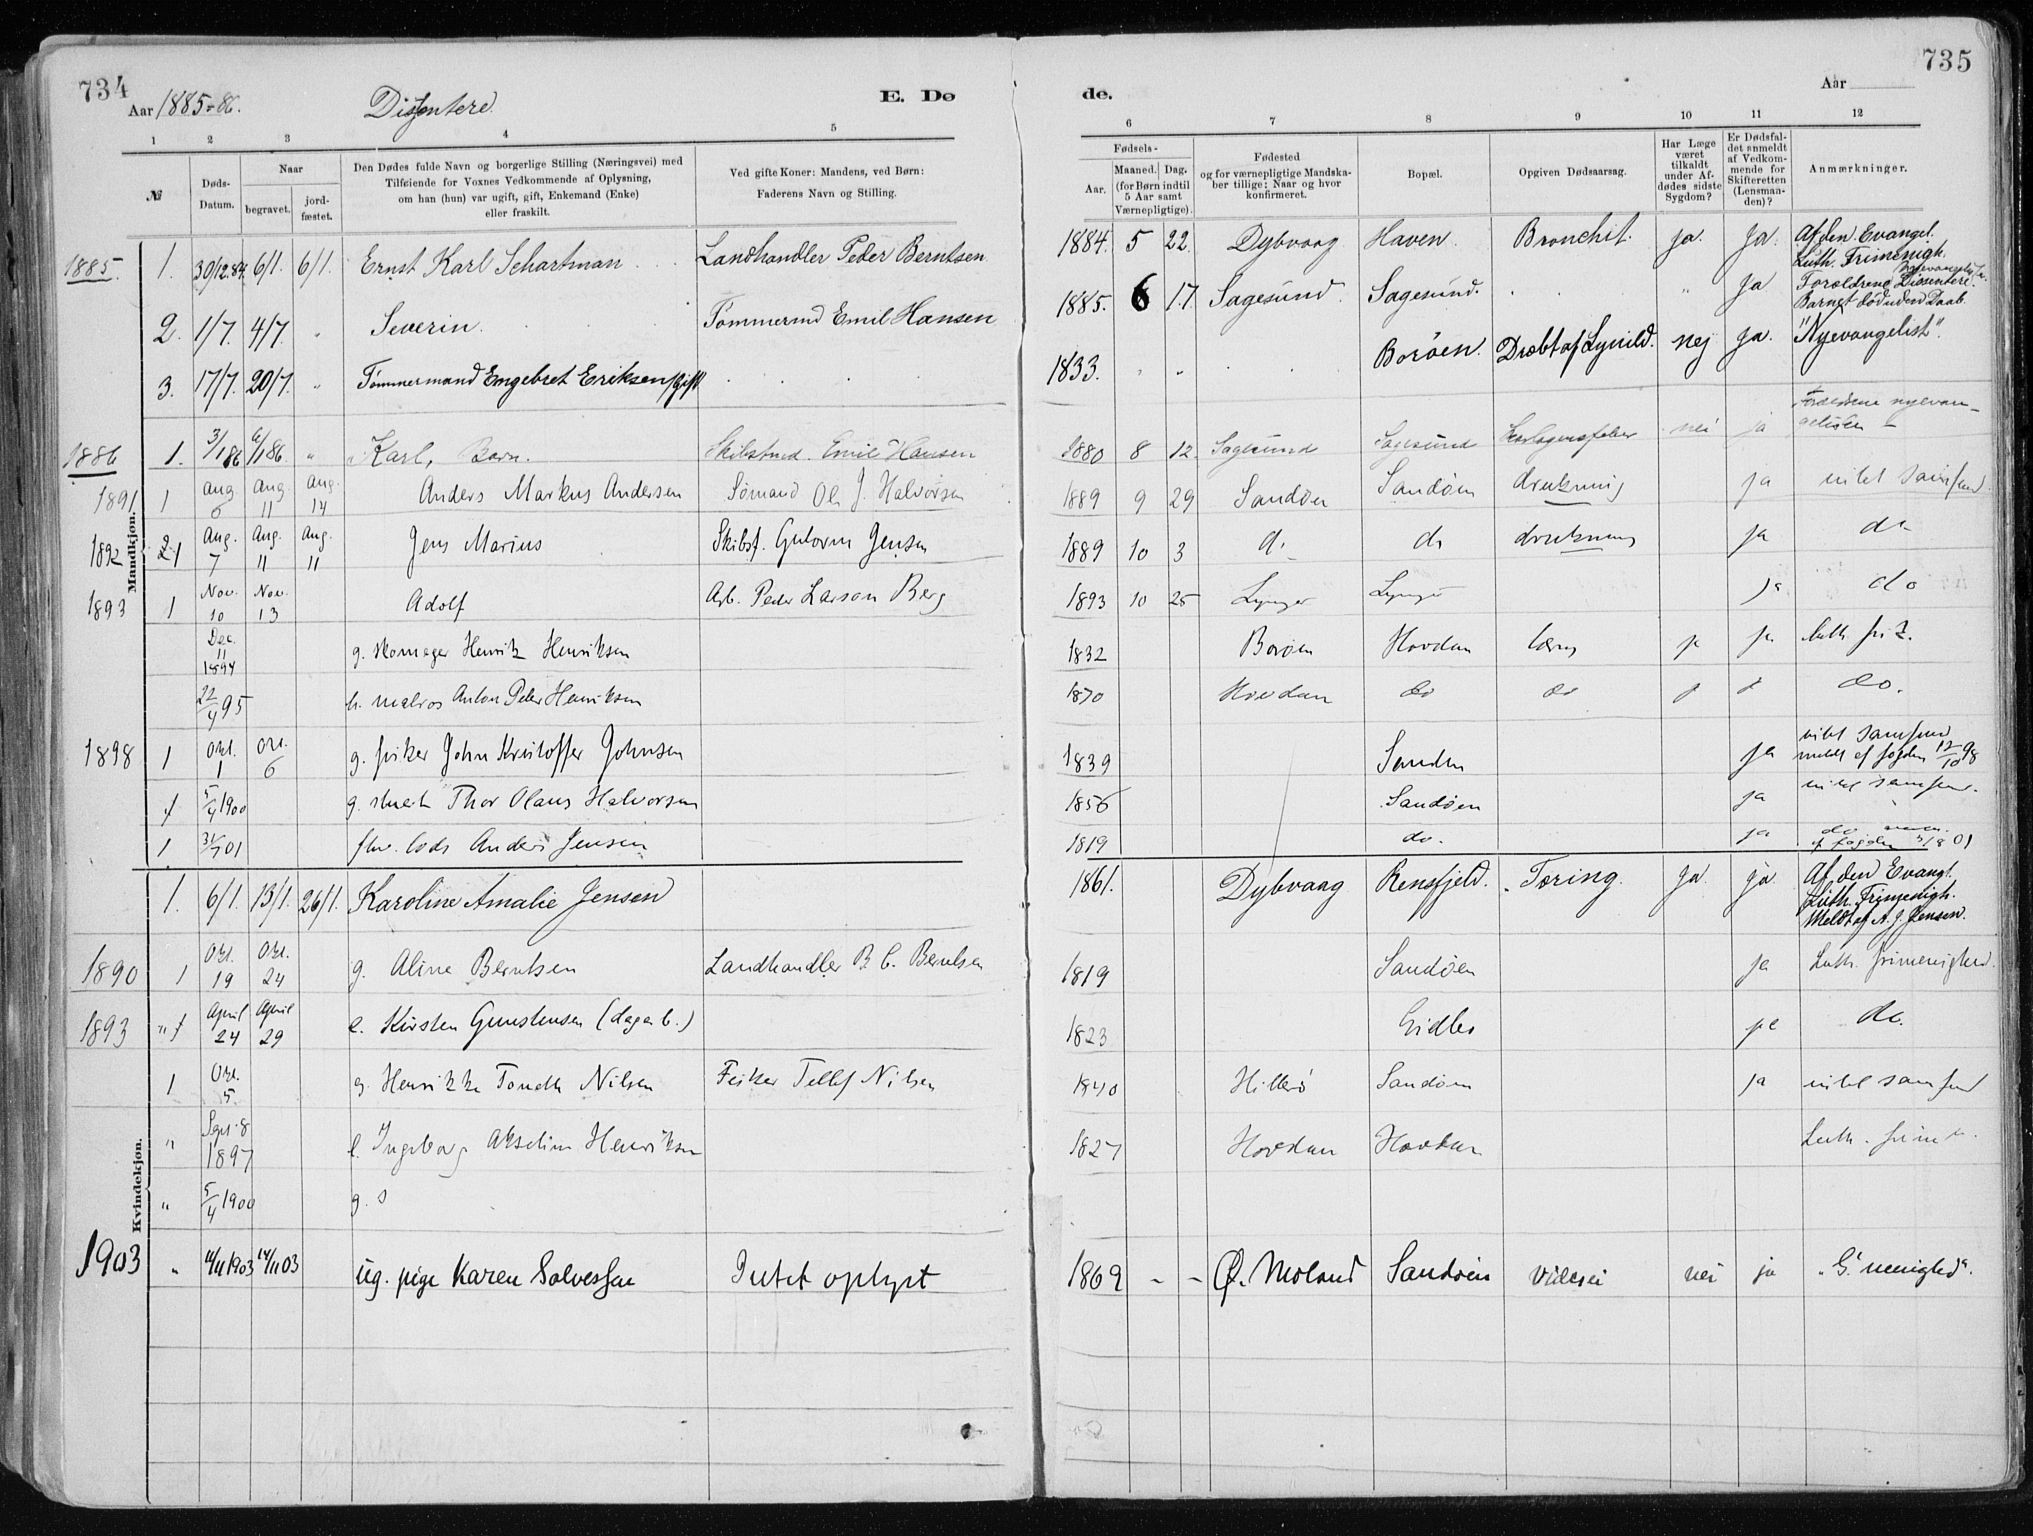 734
Aar 1885-86.
Dissentere.
E. Dø
de.
Aar
735
1 2 3 4 5
6 7 8 9 10 11 12
№
Døds-
Datum.
Naar
begravet.
jord-
fæstet.
Den Dødes fulde Navn og borgerlige Stilling (Næringsvei) med
Tilføiende for Voxnes Vedkommende af Oplysning,
om han (hun) var ugift, gift, Enkemand (Enke)
eller fraskilt.
Ved gifte Koner: Mandens, ved Børn:
Faderens Navn og Stilling.
Fødsels-
Aar.
Maaned. Dag.
(for Børn indtil
5 Aar samt
Værnepligtige).
Fødested
og for værnepligtige Mandska-
ber tillige: Naar og hvor
konfirmeret.
Bopæl.
Opgiven Dødsaarsag.
Har Læge
været
tilkaldt
under Af-
dødes sidste
Sygdom?
Er Dødsfal-
det anmeldt
af Vedkom-
mende for
Skifteretten
(Lensman-
den)?
Anmærkninger.
Mandkjøn.
1885. 1. 30/12.84. 6/1. 6/1. Ernst Karl Schartman Landhandler Peder Berntsen 1884. 5 22. Dybvaag Haven. Bronchit. ja. Ja. Af den Evangel.
Luth. Frimenigh.
2. 1/7. 4/7. " Severin. Tømmermd Emil Hansen 1885. 6 17. Sagesund. Sagesund. " Ja Forældrene Dissentere.
Barnet død uden Daab.
3. 17/7. 20/7. " Tømmermand Engebret Eriksen, gift. 1833. " Borøen. Dræbt af Lynild. nej Ja. "Nyevangelist".
1886 1. 3/1 86 6/1 86. " Karl, Barn. Emil Hansen 1880 8 12. Sagesund Sagesund nei ja Forældrene nyevan-
gelister
1891 1 Aug. 6 Aug. 11 Aug. 14 Anders Markus Andersen Sømand Ole J. Halvorsen 1889 9 29 Sandøen Sandøen drukning ja
1892 2 1 Aug. 7 Aug. 11 Aug. 11 Jens Marius Skibsf. Gulovsen Jensen 1889 10 3 do do drukning ja do
1893 1 Nov. 10 Nov. 13 Adolf Arb. Peder Larsen Berg 1893 10 25 Lyngør Lyngør ja do
Dec. 11 1894 g. skomager Henrik Henriksen 1832 Borøen Hovdan tæring ja ja luth. fri
22/4 95 u. matros Anton Peter Henriksen 1870 Hovdan do do j j do.
1898 1 Okt. 1 Okt. 6 g. fisker John Kristoffer Johnsen 1839 Sandøen ja
meldt af fogden 12/10 98
1 5/4 1900 g. Thor Olaus Halvorsen 1856 Sandøen ja
1 31/7 01 lods Anders Jensen 1819 do. ja do
af fogden 3/8 01
Kvindekjøn.
1. 6/1. 13/1. 26/1. Karoline Amalie Jensen 1861. Dybvaag Rensfjeld. Tæring. Ja. ja. Af den Evangl.
Luth. Frimenigh.
Meldt af A. J. Jensen.
1890 1 Okt. 19 Okt. 24 g. Aline Berntsen Landhandler B. C. Berntsen 1819 Sandøen ja Luth. frimenighed.
1893 " 1 April 24 April 29 e. Kirsten Gunstensen 1823 ja do.
1 Okt. 5 g. Henrikke Nilsen Fisker Tellef Nilsen 1840 Sandøen ja
" Sept. 8 1897 e. Ingeborg Akseline Henriksen 1827 Hovdan Hovdan Luth.
" 5/4 1900 g.
1903 " 11/11 1903 14/11 03 ug. pige Karen Solvessen Intet oplyst 1869 - - Ø. Moland Sandøen nei ja menighed".